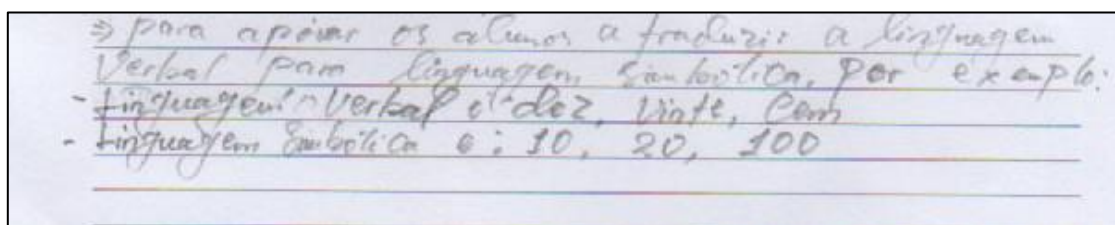 ⇒ para apoiar os alunos a traduzir a linguagem
Verbal para linguagem simbólica, por exemplo:
- Linguagem Verbal é: dez, vinte, Cem
- Linguagem Simbólica é: 10, 20, 100